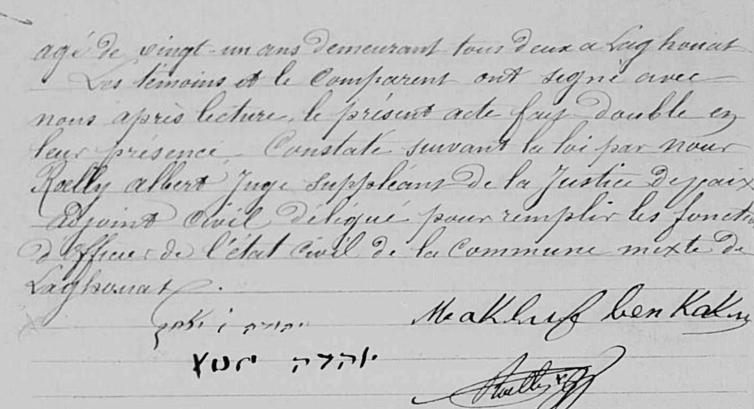 agé de vingt-un ans demeurant tous deux a Laghouat
Les témoins et le Comparent ont signé avec
nous après lecture, le présent acte fait double en
leur présence. Constaté suivant la loi par nous
Roelly Albert Juge Suppléant de la Justice de paix
adjoint civil délégué pour remplir les foncti
d'officier de l'état civil de la Commune mixte de
Laghouat.
יהודה
Makluf ben Kak
יהודה
Roelly